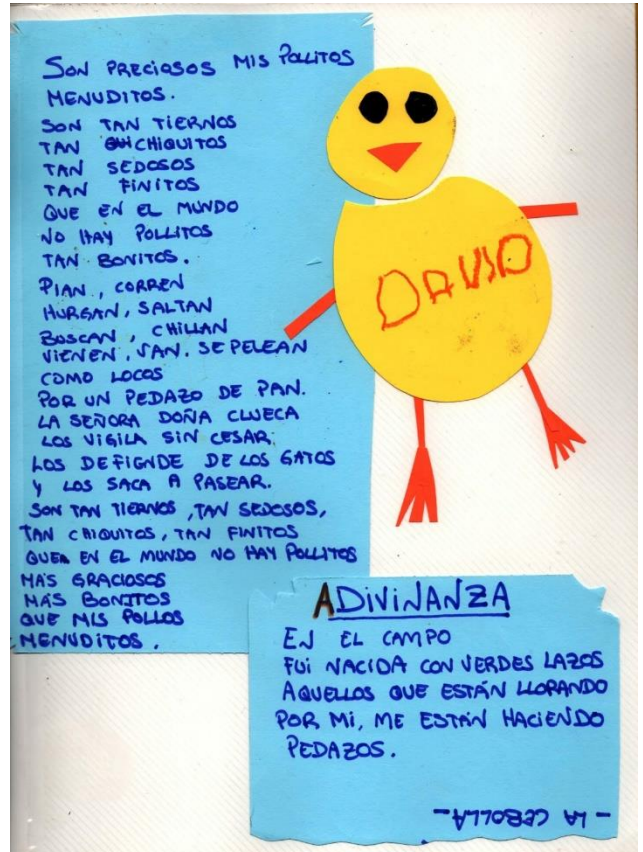 SON PRECIOSOS MIS POLLITOS
MENUDITOS.
SON TAN TIERNOS
TAN CHIQUITOS
TAN SEDOSOS
TAN FINITOS
QUE EN EL MUNDO
NO HAY POLLITOS
TAN BONITOS.
PIAN, CORREN
HURGAN, SALTAN
BUSCAN, CHILLAN
VIENEN, VAN. SE PELEAN
COMO LOCOS
POR UN PEDAZO DE PAN.
LA SEÑORA DOÑA CLUECA
LOS VIGILA SIN CESAR,
LOS DEFIENDE DE LOS GATOS
Y LOS SACA A PASEAR.
SON TAN TIERNOS, TAN SEDOSOS,
TAN CHIQUITOS, TAN FINITOS
QUE EN EL MUNDO NO HAY POLLITOS
MÁS GRACIOSOS
MÁS BONITOS
QUE MIS POLLOS
MENUDITOS.
DAVID
ADIVINANZA
EN EL CAMPO
FUI NACIDA CON VERDES LAZOS
AQUELLOS QUE ESTÁN LLORANDO
POR MI, ME ESTÁN HACIENDO
PEDAZOS.
- LA CEBOLLA -